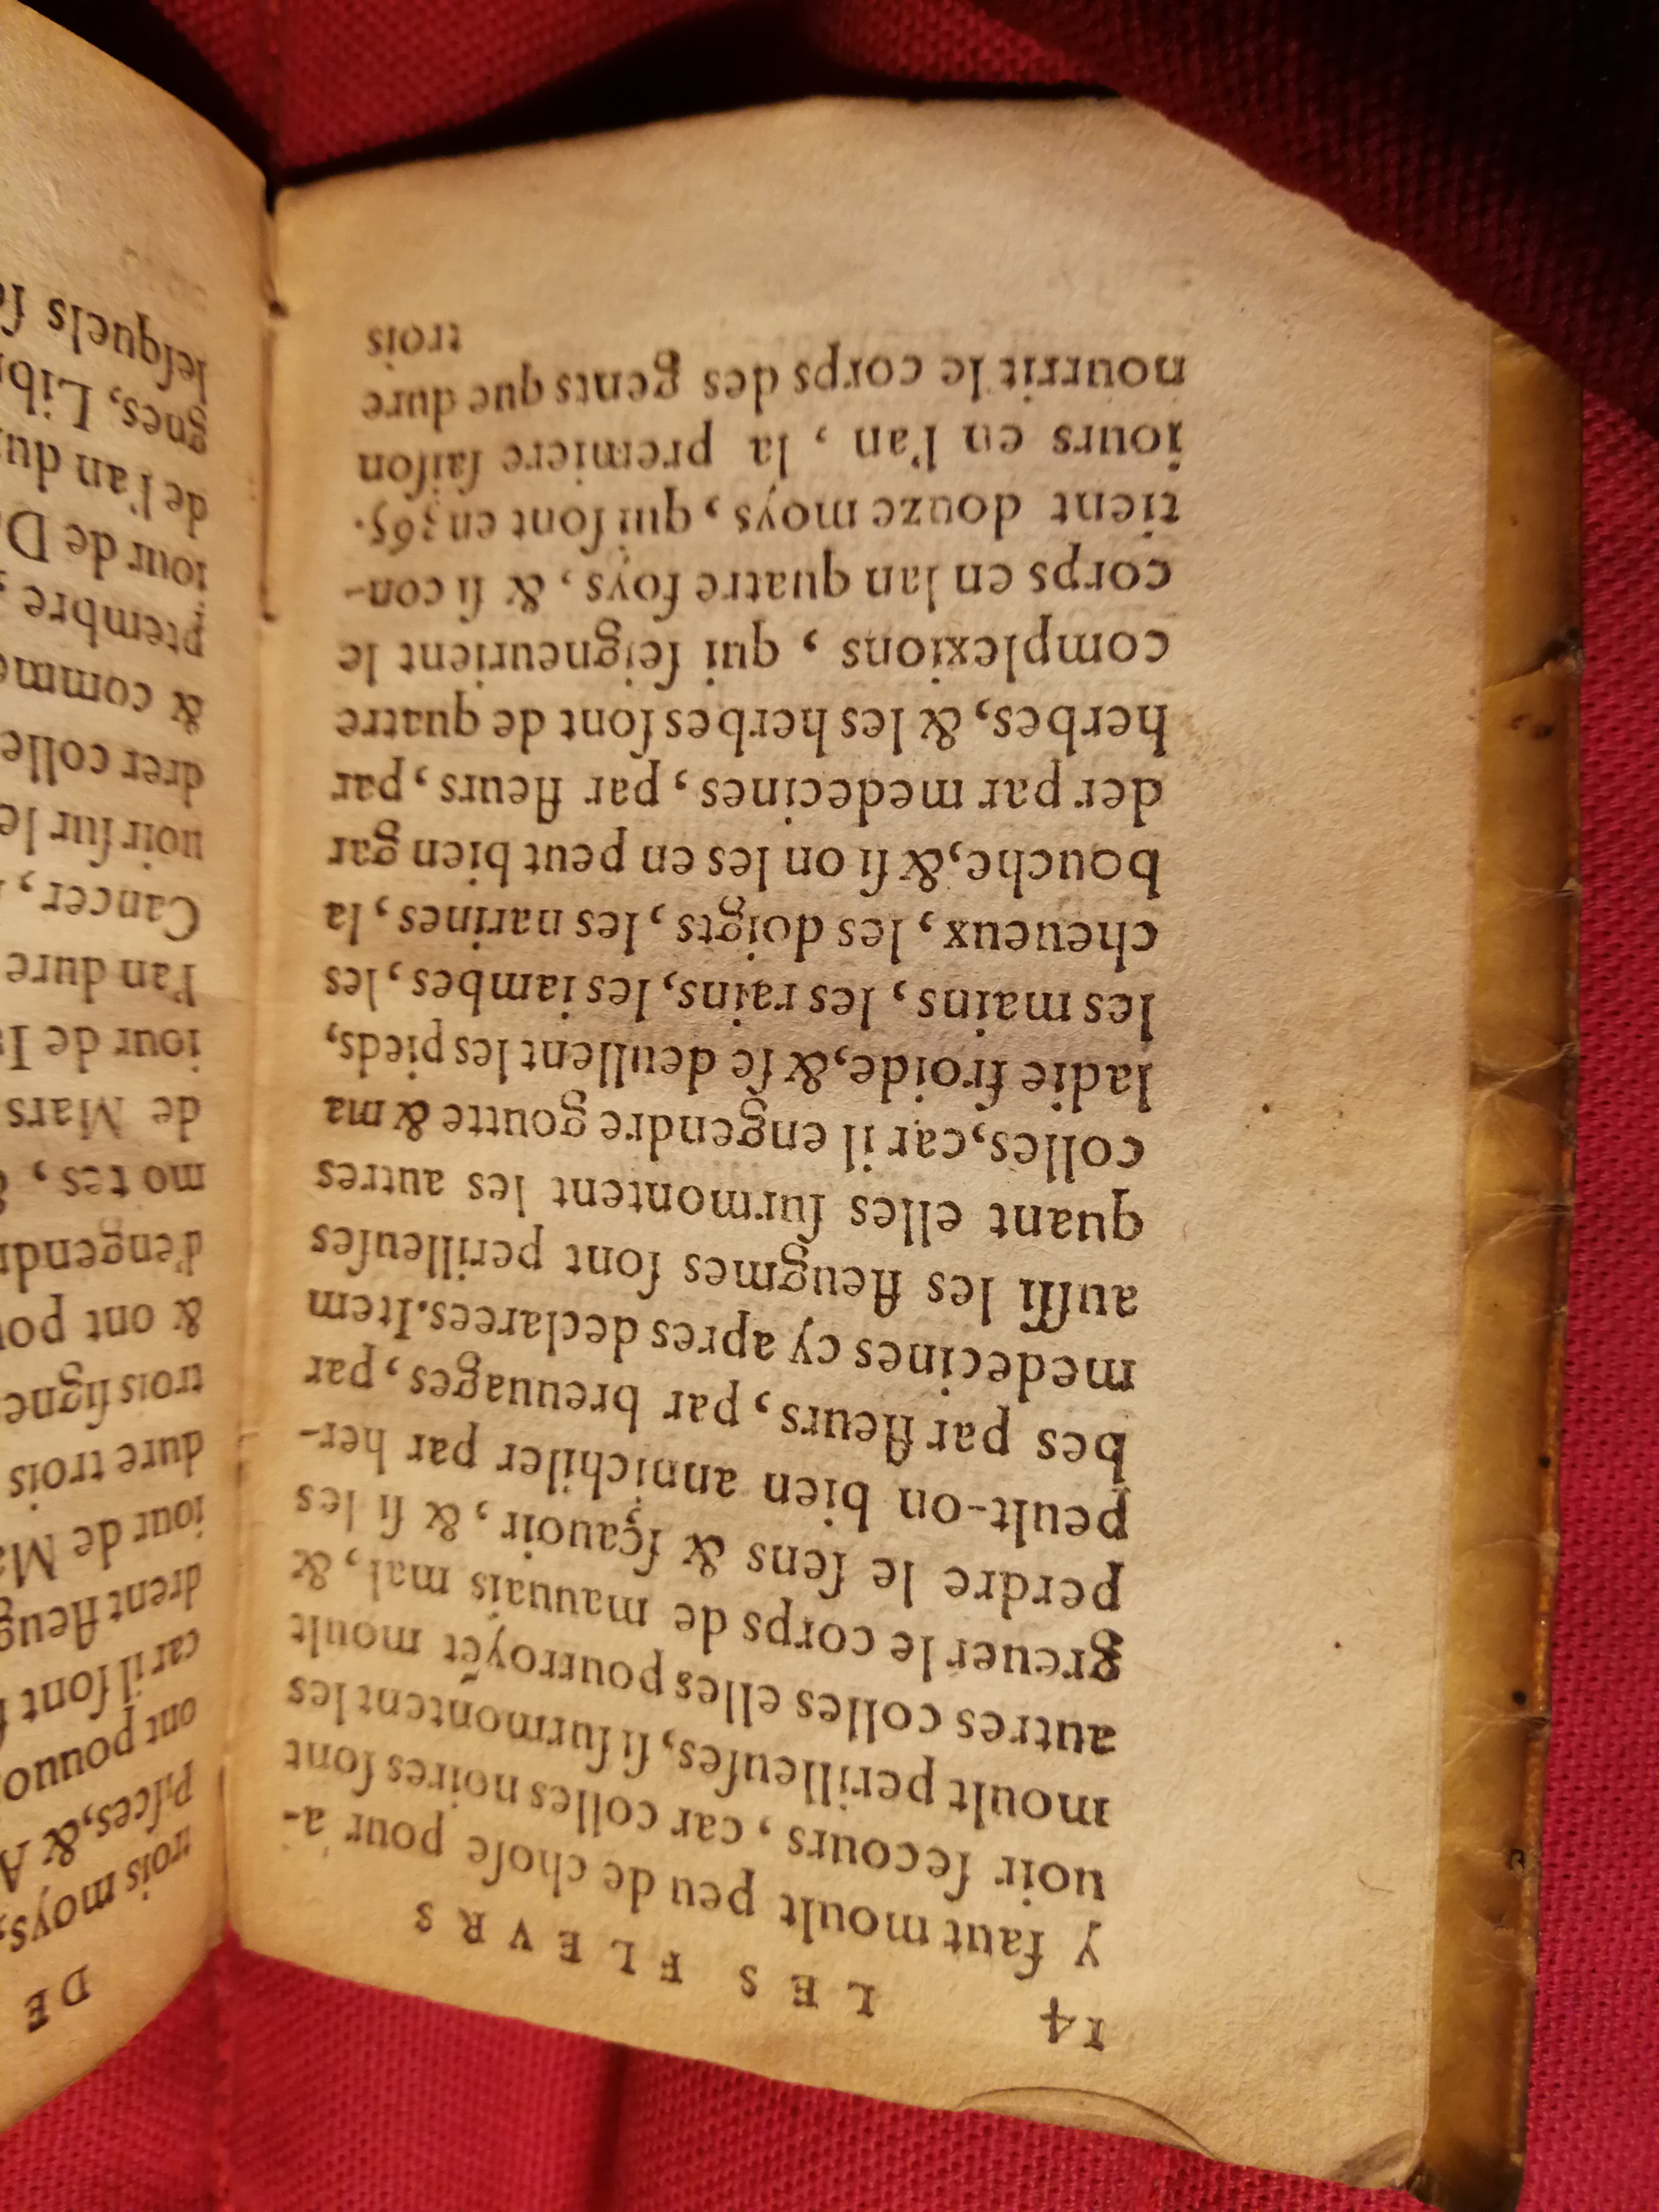 14 LES FLEVRS
y faut moult peu de choſe pour a-
uoir ſecours, car colles noires ſont
moult perilleuſes, ſi ſurmontent les
autres colles elles pourroyẽt moult
greuer le corps de mauuais mal, &
perdre le ſens & ſçauoir, & ſi les
peult-on bien annichiler par her-
bes par fleurs, par breuuages, par
medecines cy apres declarees. Item
auſſi les fleugmes ſont perilleuſes
quant elles ſurmontent les autres
colles, car il engendre goutte & ma
ladie froide, & ſe deullent les pieds,
les mains, les rains, les iambes, les
cheueux, les doigts, les narines, la
bouche, & ſi on les en peut bien gar
der par medecines, par fleurs, par
herbes, & les herbes ſont de quatre
complexions, qui ſeigneurient le
corps en lan quatre foys, & ſi con-
tient douze moys, qui ſont en 365.
iours en l'an, la premiere ſaiſon
nourrit le corps des gents que dure
trois
DE
trois moys,
Piſces, & A
ont pouuo
car il ſont
drent fleug
iour de Ma
dure trois
trois ſigne
& ont pou
d'engendr
mo tes,
de Mars
iour de
l'an dure
Cancer,
uoir ſur le
drer colle
& comme
ptembre,
iour de D
de l'an du
gnes, Lib
leſquels